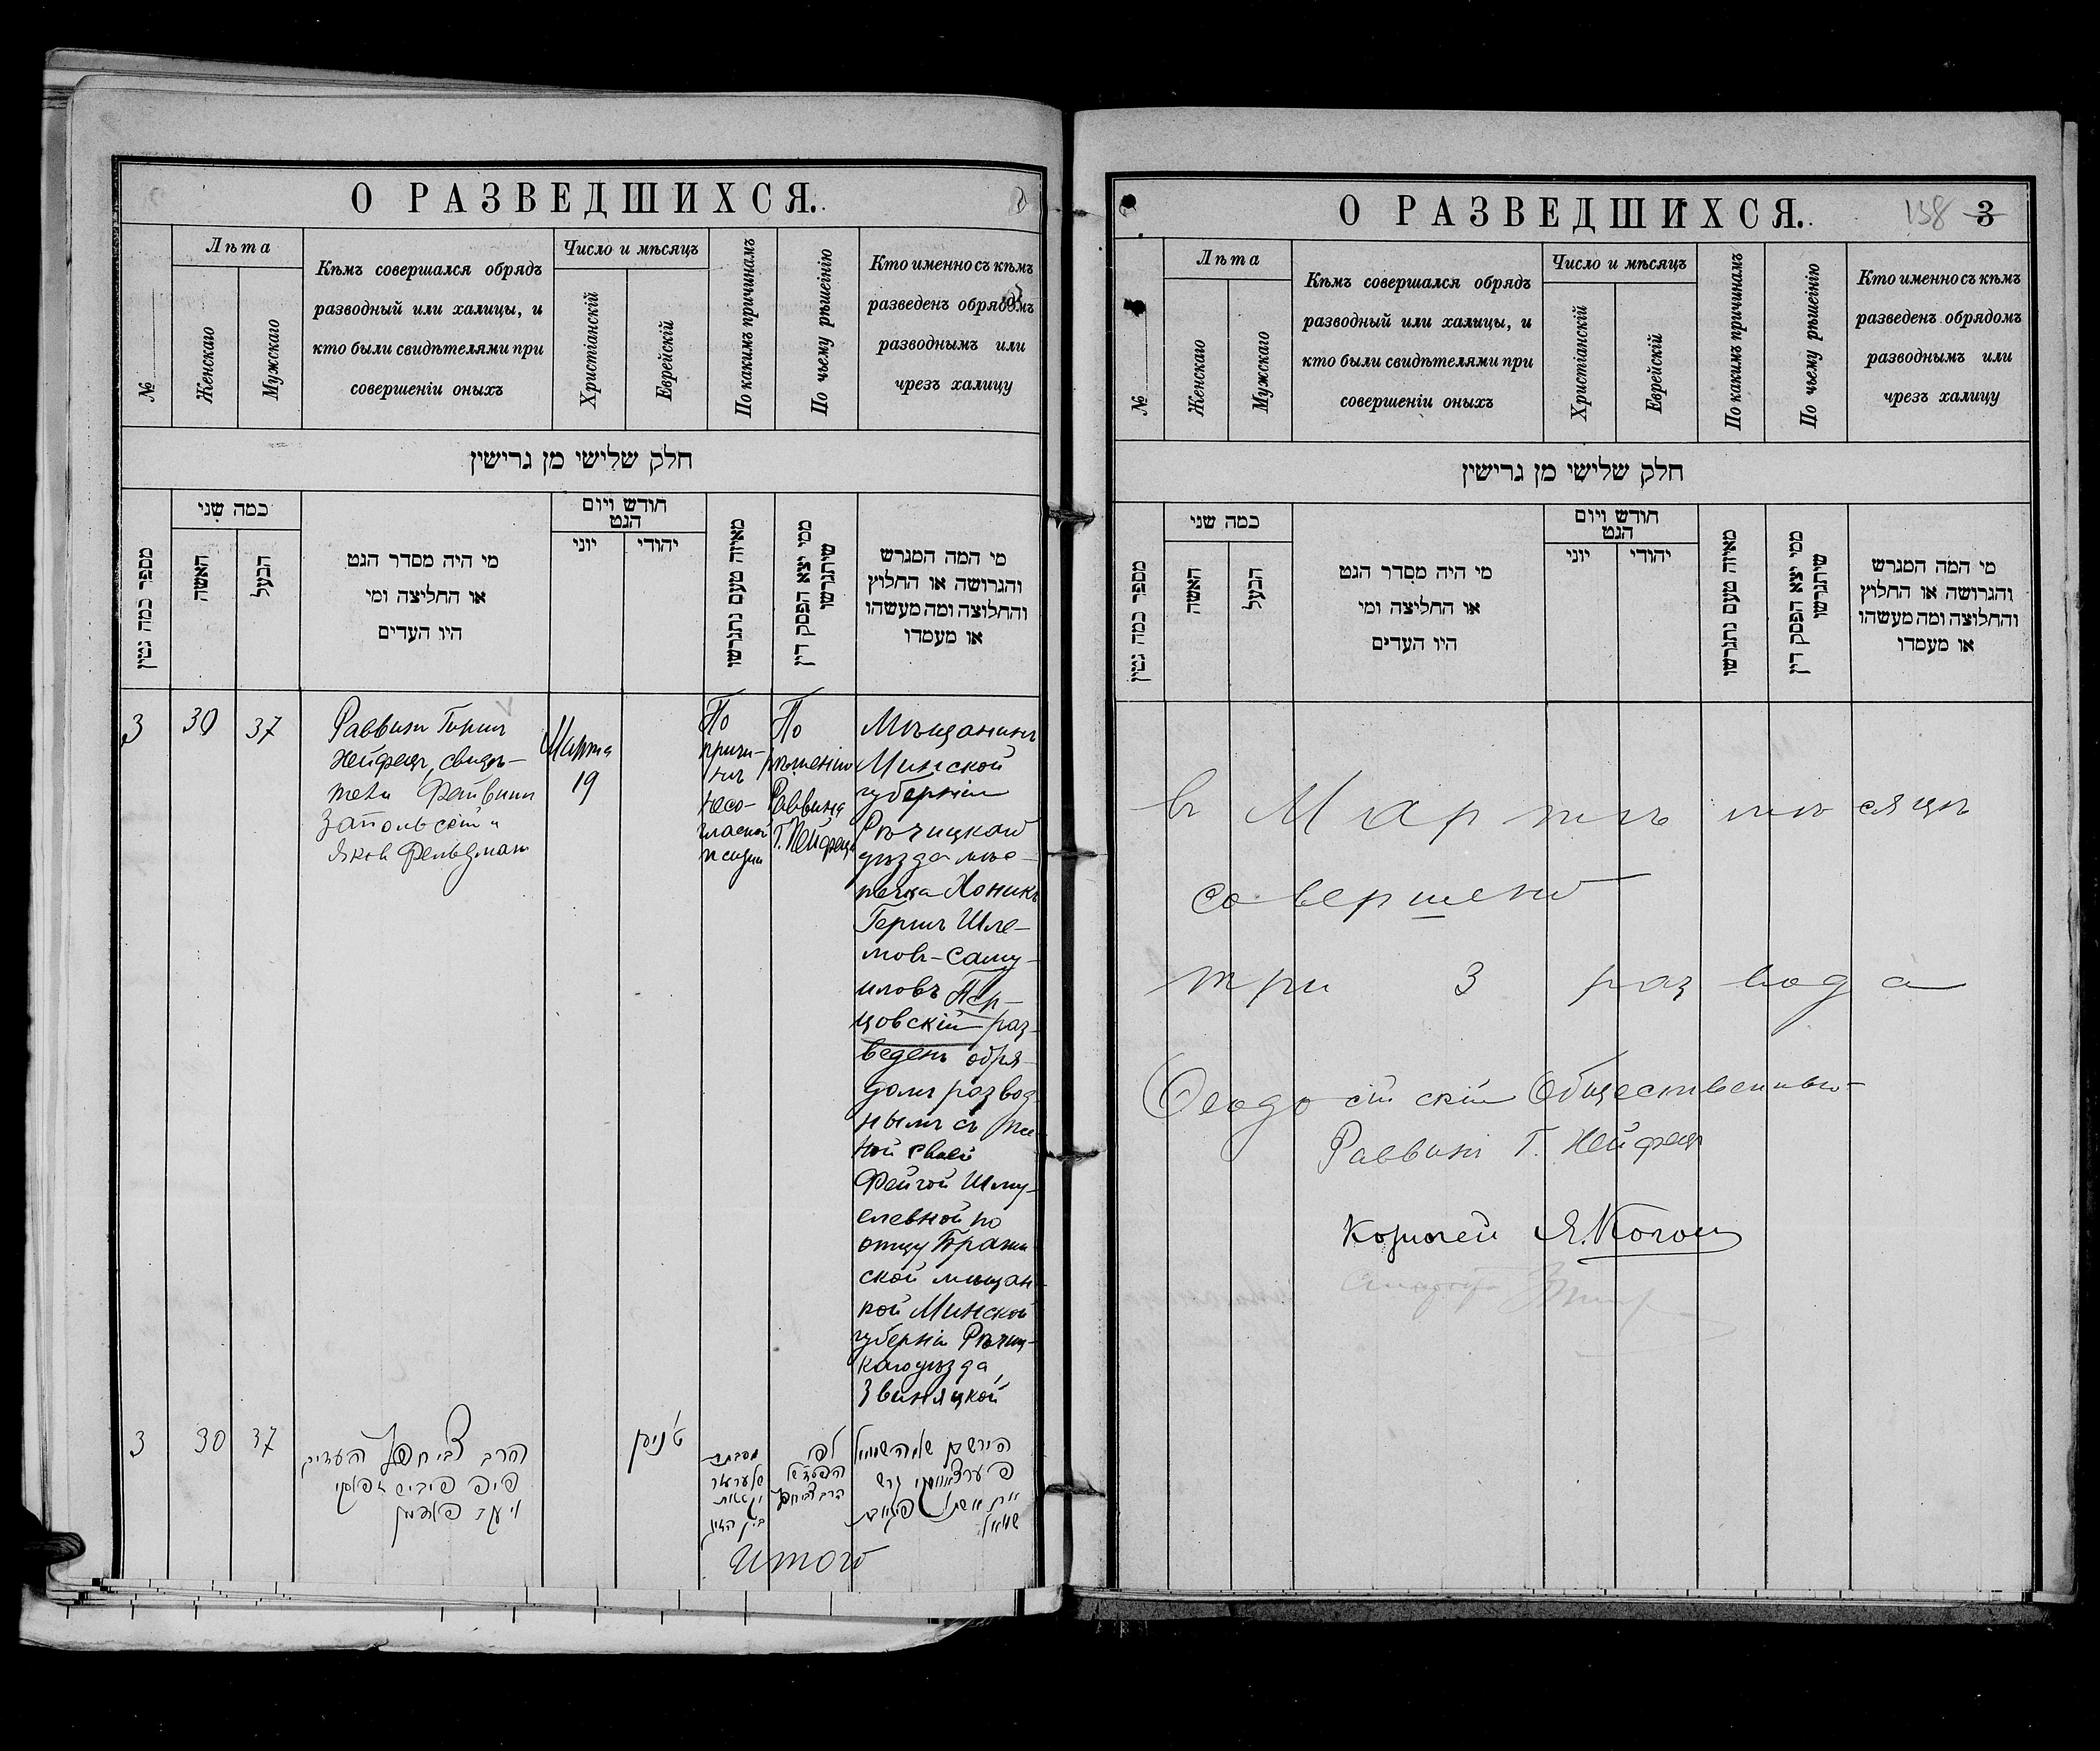 О РАЗВЕДШИХСЯ.
№
Лѣта
Женскаго
Мужскаго
Кѣмъ совершался обрядъ
разводный или халицы, и
кто были свидѣтелями при
совершеніи оныхъ
Число и мѣсяцъ
Христіанскій
Еврейскій
По какимъ причинамъ
По чьему рѣшенію
Кто именно съ кѣмъ
разведенъ обрядомъ
разводнымъ или
чрезъ халицу
חלק שלישי מן גרישין
מספר כמה גטין
כמה שני
האשה
הבעל
מי היה מסדר הגט
או החליצה ומי
היו העדים
חודש ויום
הגט
יוני
יהודי
מאיזה טעם נתגרשו
ממי יצא הפסק דין
שיתגרשו
מי המה המגרש
והגרושה או החלוץ
והחלוצה ומה מעשהו
או מעמדו
3
30
37
Раввинъ Гершъ
Нейфецъ, свидѣ-
тели Файвишъ
Запольскій и
Яковъ Фельдманъ
Марта
19
По
причи-
нѣ
несо-
гласной
жизни
По
рѣшенію
Раввина
Г. Нейфеца
Мѣщанинъ
Минской
губерніи
Рѣчицкаго
уѣзда мѣс-
течка Хойникъ
Гершъ Шле-
мовъ-Саму-
иловъ Пер-
цовскій раз-
веденъ обря-
домъ развод-
нымъ съ же-
ной своей
Фейгой Шму-
елевной по
отцу
ской мѣщан-
кой Минской
губерніи Рѣчиц-
каго уѣзда
Звиняцкой
3
30
37
הרב צבי חפץ העדים
ט ניסן
לפי
Итого
О РАЗВЕДШИХСЯ.
138
3
№
Лѣта
Женскаго
Мужскаго
Кѣмъ совершался обрядъ
разводный или халицы, и
кто были свидѣтелями при
совершеніи оныхъ
Число и мѣсяцъ
Христіанскій
Еврейскій
По какимъ причинамъ
По чьему рѣшенію
Кто именно съ кѣмъ
разведенъ обрядомъ
разводнымъ или
чрезъ халицу
חלק שלישי מן גרישין
מספר כמה גטין
כמה שני
האשה
הבעל
מי היה מסדר הגט
או החליצה ומי
היו העדים
חודש ויום
הגט
יוני
יהודי
מאיזה טעם נתגרשו
ממי יצא הפסק דין
שיתגרשו
מי המה המגרש
והגרושה או החלוץ
והחלוצה ומה מעשהו
או מעמדו
въ Мартѣ мѣсяцѣ
совершено
три 3 развода
Ѳеодосійскій Общественный
Раввинъ Г. Нейфецъ
Казначей Я. Коганъ
Староста